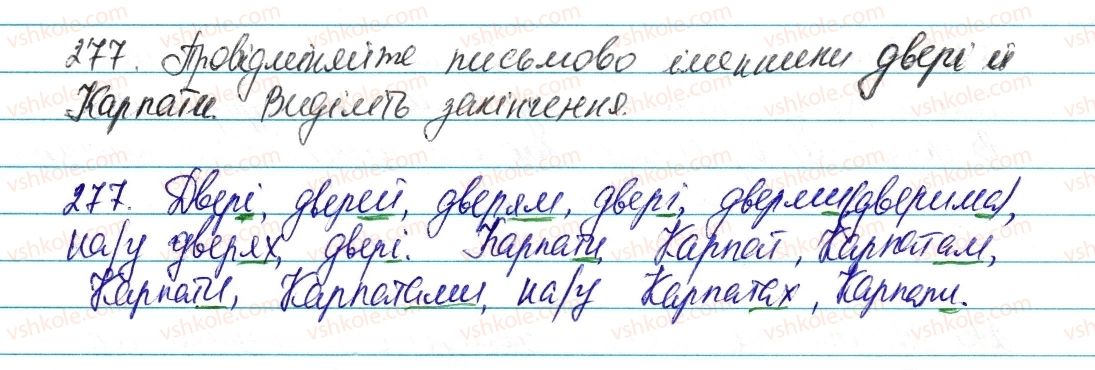 277. Провідміняйте письмово іменники двері й
Карпати. Виділіть закінчення.
277. Двері, дверей, дверям, двері, дверми(дверима),
на/у дверях, двері. Карпати, Карпат, Карпатам,
Карпати, Карпатами, на/у Карпатах, Карпати.